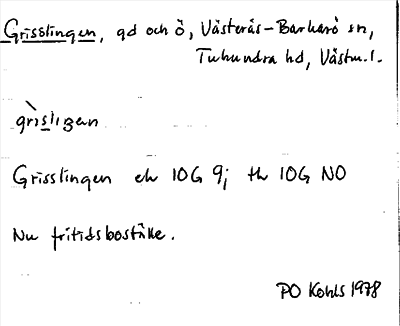 Grisslingen, gd och ö, Västerås-Barkarö sn,
Tuhundra hd, Västm.l.
grìsliŋen
Grisslingen ek 10G 9j th 10G NO
Nu fritidsboställe.
PO Kohls 1978